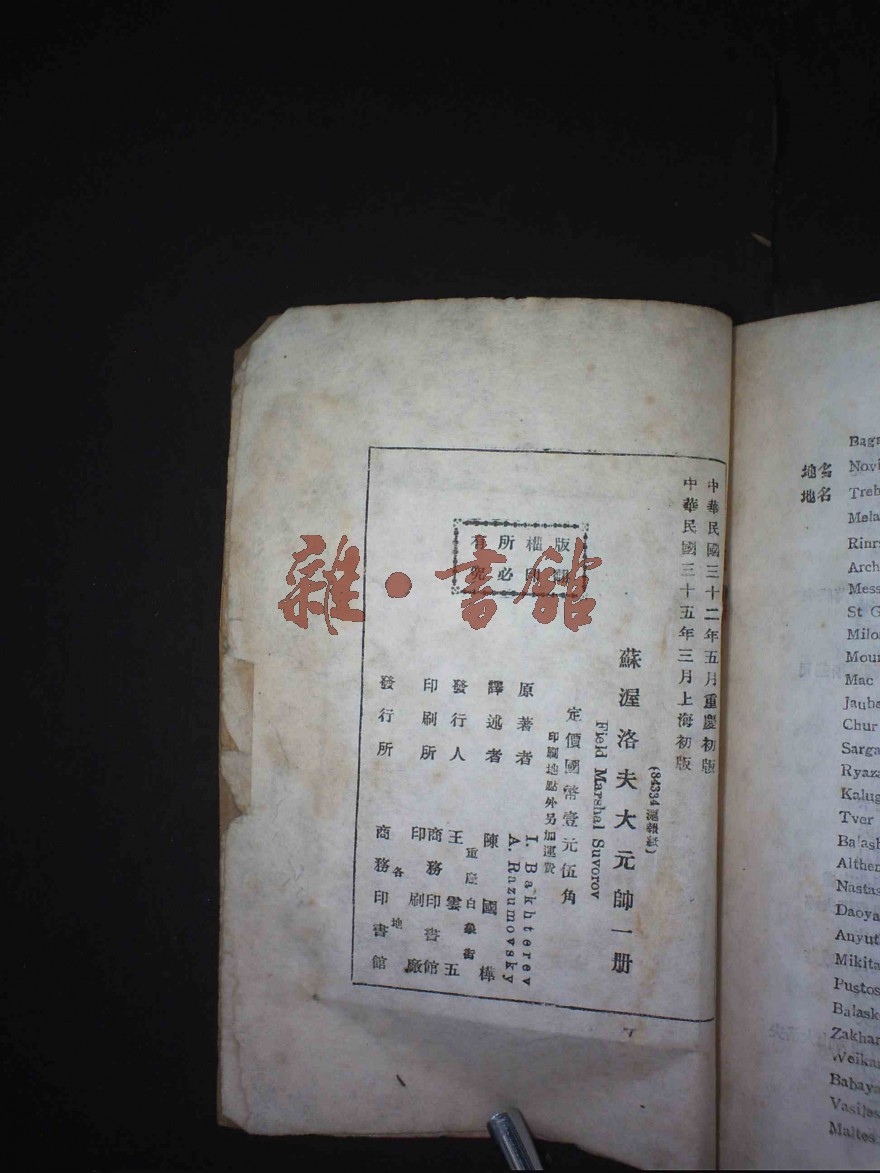 中華民國三十二年五月重慶初版
中華民國三十五年三月上海初版
(84334滬報紙)
蘇渥洛夫大元帥一册
Field Marshal Suvorov
定價國幣壹元伍角
印刷地點外另加運費
原著者 I. Bakhterev
A. Razumovsky
譯述者 陳國樺
重慶白象街
發行人 王雲五
印刷所 商務印書館
印刷廠
發行所 各地
商務印書館
版權所有
翻印必究
雜·書館
地名 Novi
地名 Treb
Mela
Arch
Mess
St G
Milo
Mour
Mac
Jauba
Chur
Sarga
Ryaza
Kalug
Tver
Ba'ash
Althen
Nastas
Daoya
Anyut
Mikita
Pustos
Balask
Zakhar
Weikar
Babaya
Vasiles
Maltes